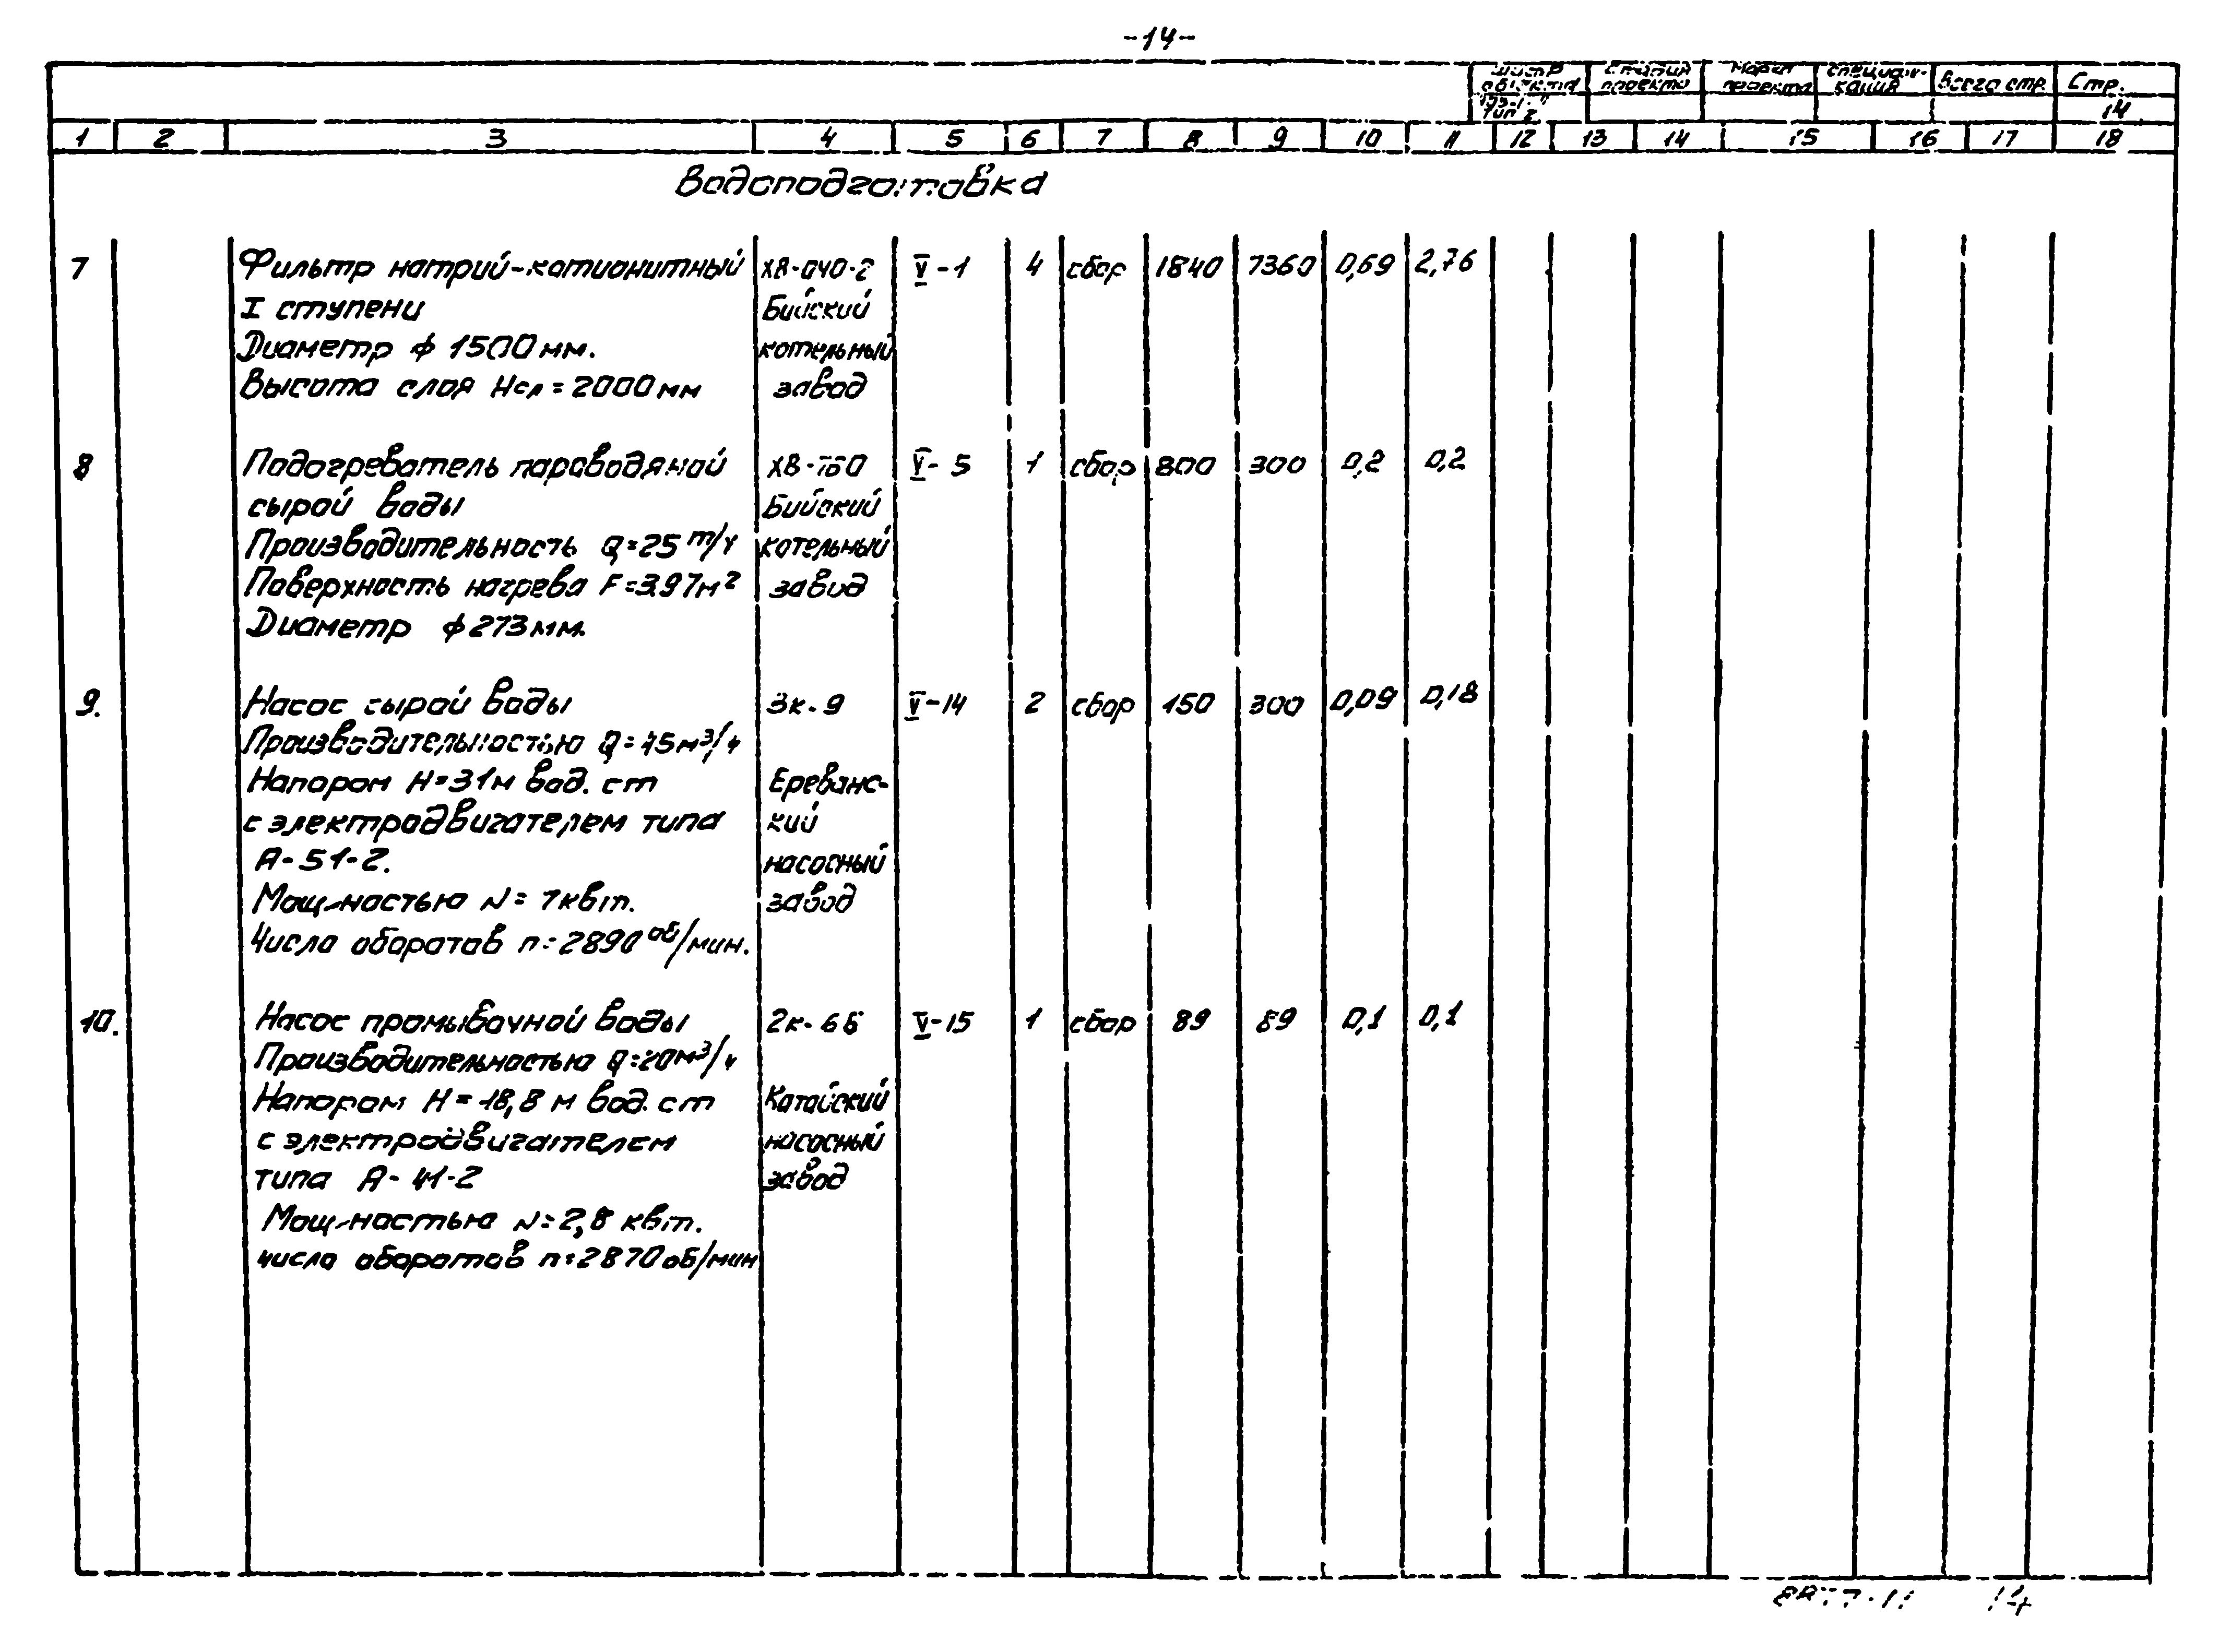 -14-
Шифр объекта Стадия проекта Марка проекта Специфи-кация Всего стр. Стр.
Тип 2 14
1 2 3 4 5 6 7 8 9 10 11 12 13 14 15 16 17 18
Водоподготовка
7 Фильтр натрий-катионитный ХВ-040-2 V-1 4 сбор 1840 7360 0,69 2,76
I ступени Бийский
Диаметр ф 1500 мм. котельный
Высота слоя Нсл = 2000 мм завод
8 Подогреватель пароводяной V-5 1 сбор 800 300 0,2 0,2
сырой воды Бийский
Производительность Q=25 т/ч котельный
Поверхность нагрева F=3.97м² завод
Диаметр ф 273 мм.
9. Насос сырой воды 3к-9 V-14 2 сбор 150 300 0,09 0,18
Производительностью Q=45 м³/ч
Напором Н=31м вод. ст Ереванс-
с электродвигателем типа кий
А-51-2. насосный
Мощ-ностью N= 7квт. завод
Числа оборотов n=2890 об/мин.
10. Насос промывочной воды 2к-6б V-15 1 сбор 89 89 0,1 0,1
Производительностью Q=20м³/ч
Напором Н=18,8 м вод. ст Катайский
с электродвигателем насосный
типа А-41-2 завод
Мощ-ностью N=2,8 квт.
числа оборотов n=2870 об/мин
14